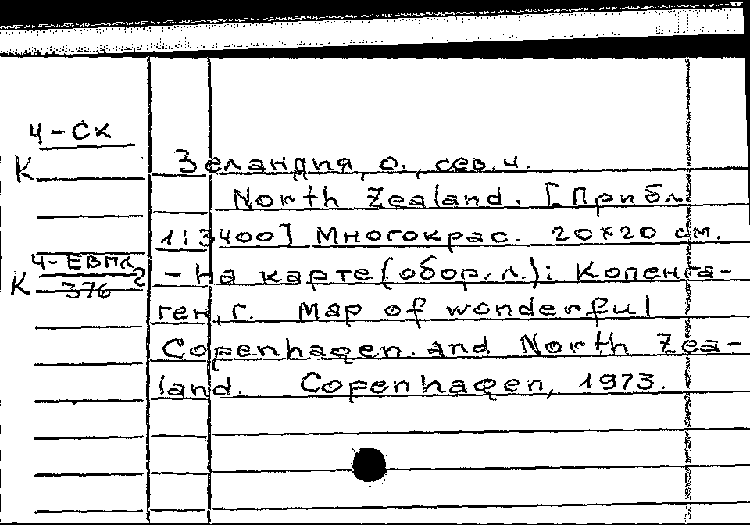 Ч-СК
К
Зеландия, о., сев. ч.
North Zealand. [Прибл.
1:3400] Многокрас. 20x20 см.
Ч-ЕВМЛ
К 376 2
- На карте (обор. л.): Копенга-
ген, г. Map of wonderful
Copenhagen and North Zea-
land. Copenhagen, 1973.